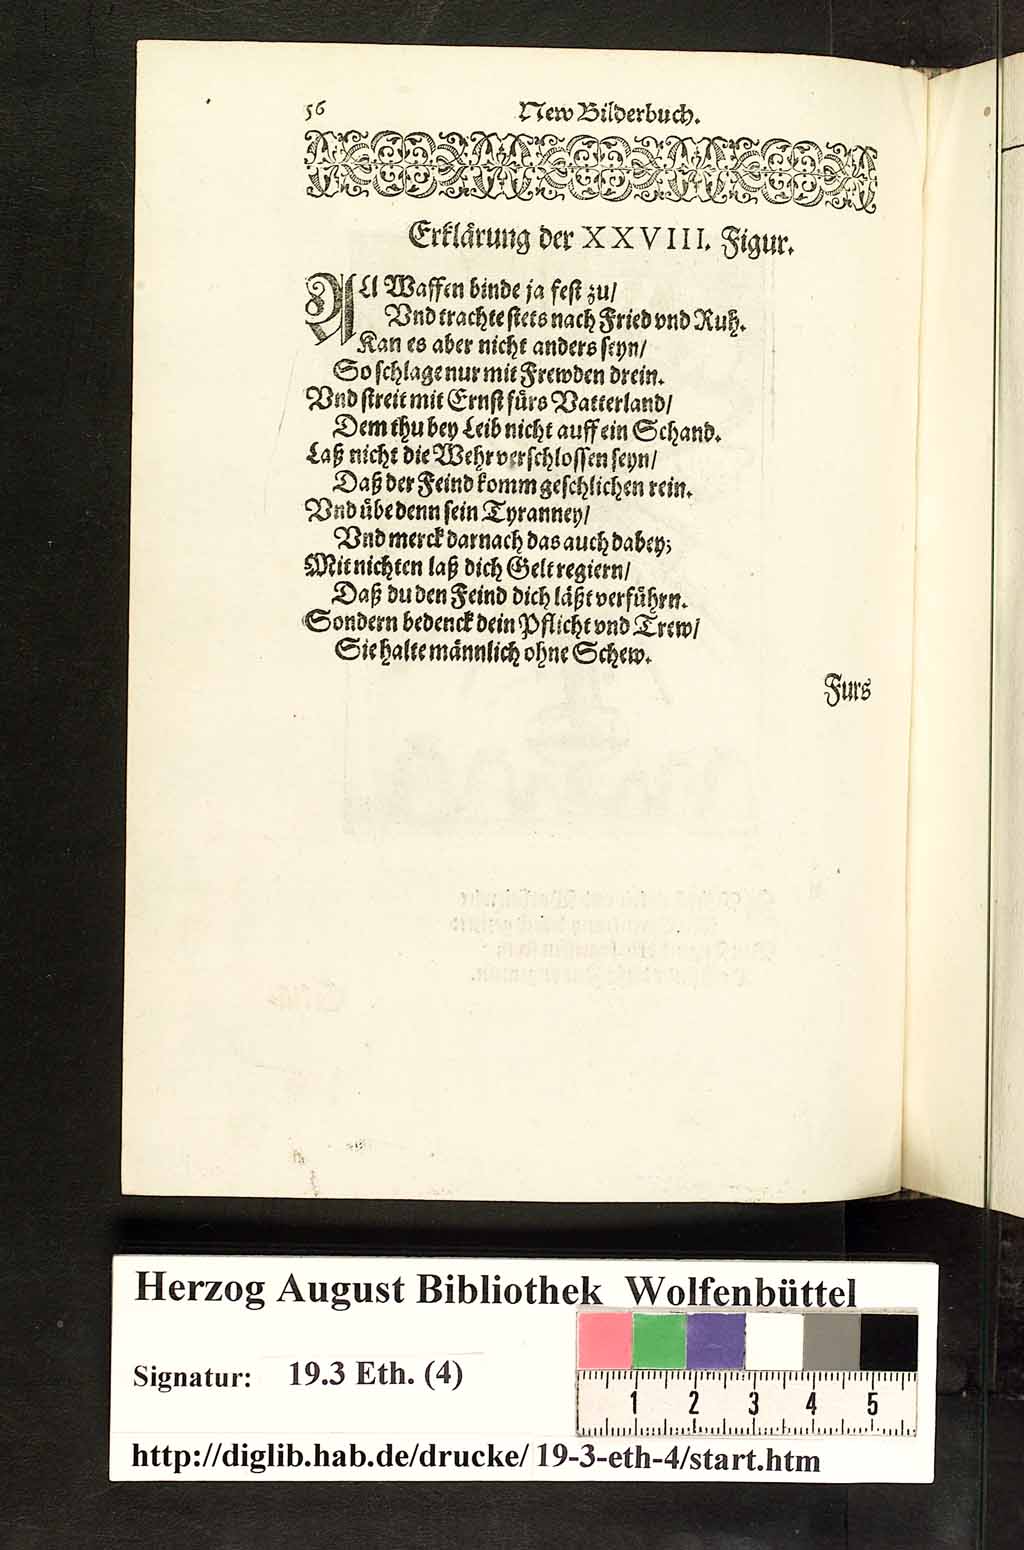 56
New Bilderbuch.
Erklärung der XXVIII. Figur.
All Waffen binde ja fest zu/
Vnd trachte stets nach Fried vnd Ruh.
Kan es aber nicht anders seyn/
So schlage nur mit Frewden drein.
Vnd streit mit Ernst fürs Vatterland/
Dem thu bey Leib nicht auff ein Schand.
Laß nicht die Wehr verschlossen seyn/
Daß der Feind komm geschlichen rein.
Vnd übe denn sein Tyranney/
Vnd merck darnach das auch dabey;
Mit nichten laß dich Gelt regiern/
Daß du den Feind dich läßt verführn.
Sondern bedenck dein Pflicht vnd Trew/
Sie halte männlich ohne Schew.
Furs
Herzog August Bibliothek Wolfenbüttel
Signatur: 19.3 Eth. (4)
1 2 3 4 5
http://diglib.hab.de/drucke/19-3-eth-4/start.htm